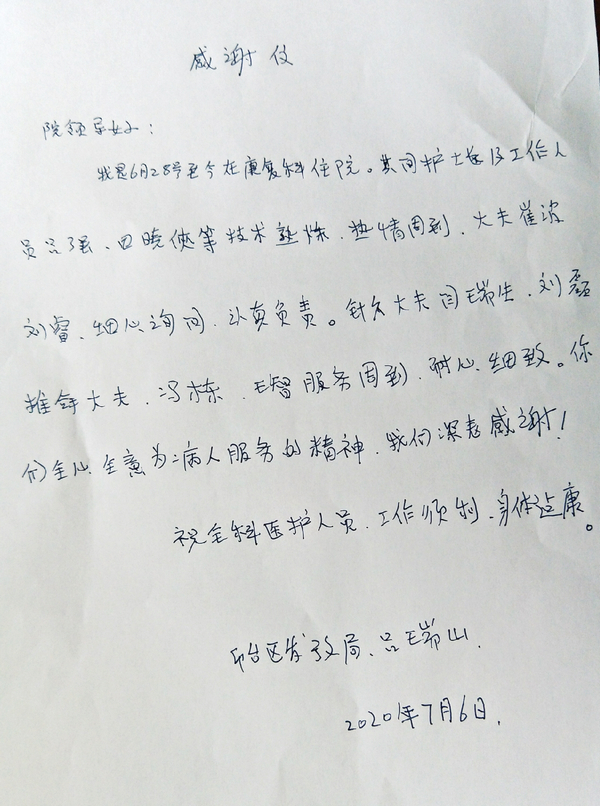 感谢仪
院领导好：
我是6月28号至今在康复科住院。其间护士长及工作人
员吕强、田晓侠等技术熟炼、热情周到、大夫崔波
刘睿、细心询问、认真负责。针灸大夫闫瑞生、刘磊
推拿大夫、冯栋、王智服务周到、耐心细致。你
们全心全意为病人服务的精神、我们深表感谢！
祝全科医护人员、工作顺利、身体健康。
发改局、吕瑞山.
2020年7月6日.